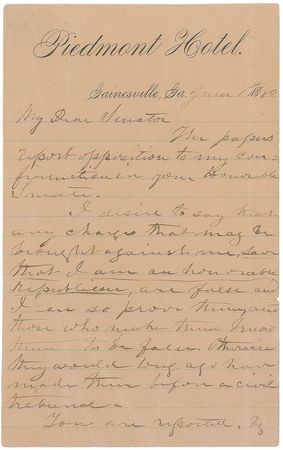 Piedmont Hotel.
Gainesville, Ga. June 1st 1880
My Dear Senator
The papers
report opposition to my con-
firmation in your Honorable
Senate.
I desire to say that
any charges that may be
brought against me, save
that I am an honorable
Republican, are false and
I can so prove them, and
those who make them know
them to be false. Otherwise
they would long ago have
made them before a civil
tribunal.
You are reported, by